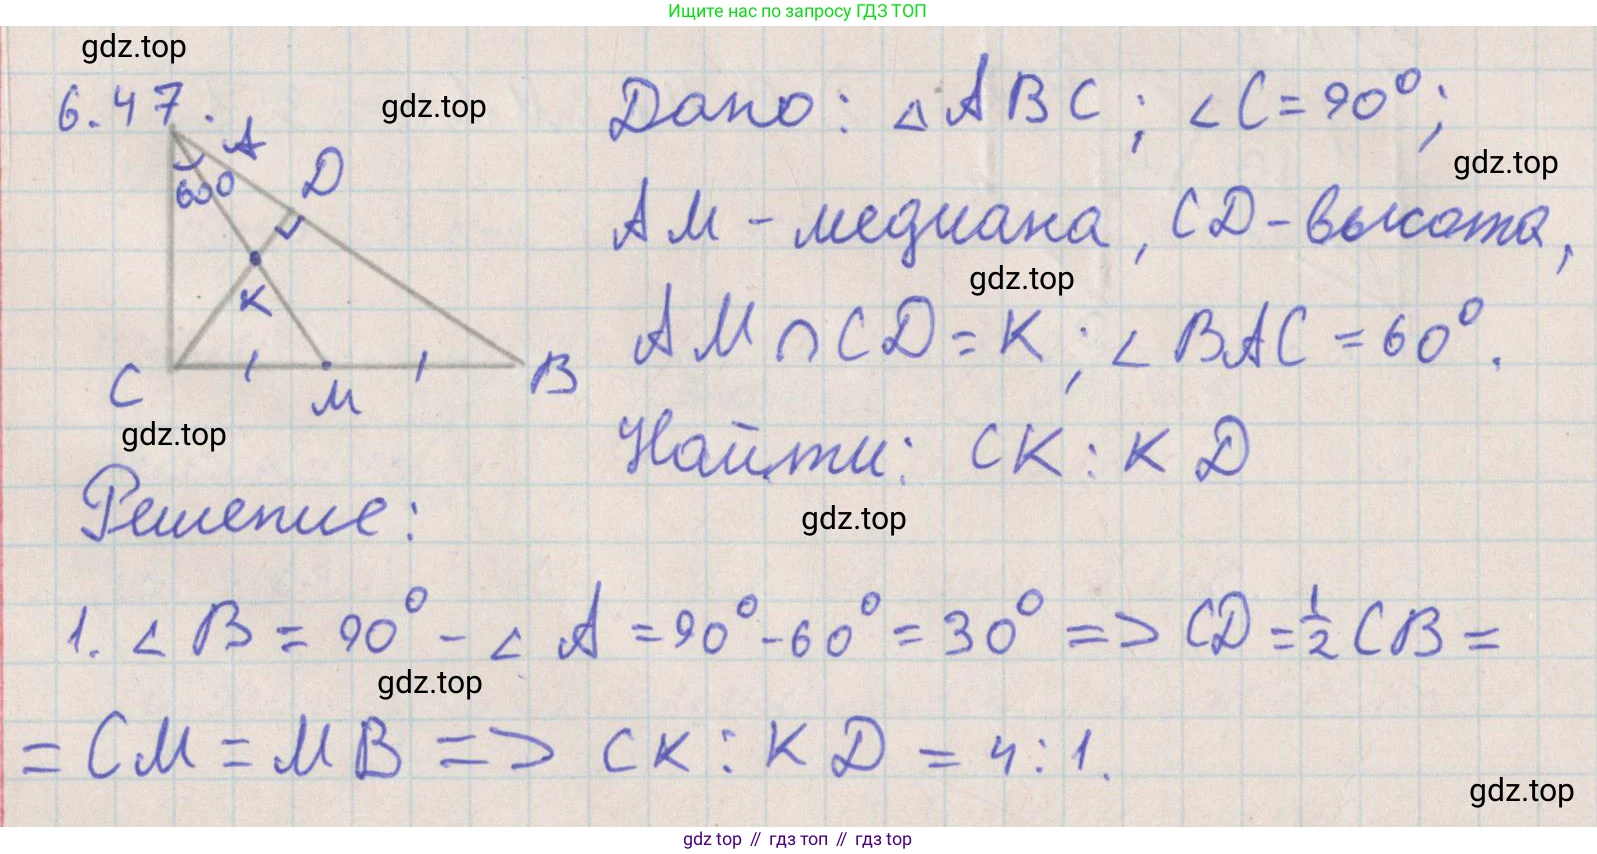 Ищите нас по запросу ГДЗ ТОП
gdz.top
6.47.
gdz.top
Дано: △ABC; ∠C=90°;
gdz.top
A
D
60°
K
C
M
B
AM - медиана, CD - высота,
gdz.top
AM∩CD=K; ∠BAC=60°.
gdz.top
Найти: CK:KD
Решение:
gdz.top
1. ∠B=90°-∠A=90°-60°=30° => CD=1/2CB=
gdz.top
=CM=MB => CK:KD=4:1.
gdz.top
gdz top // гдз топ // gdz top